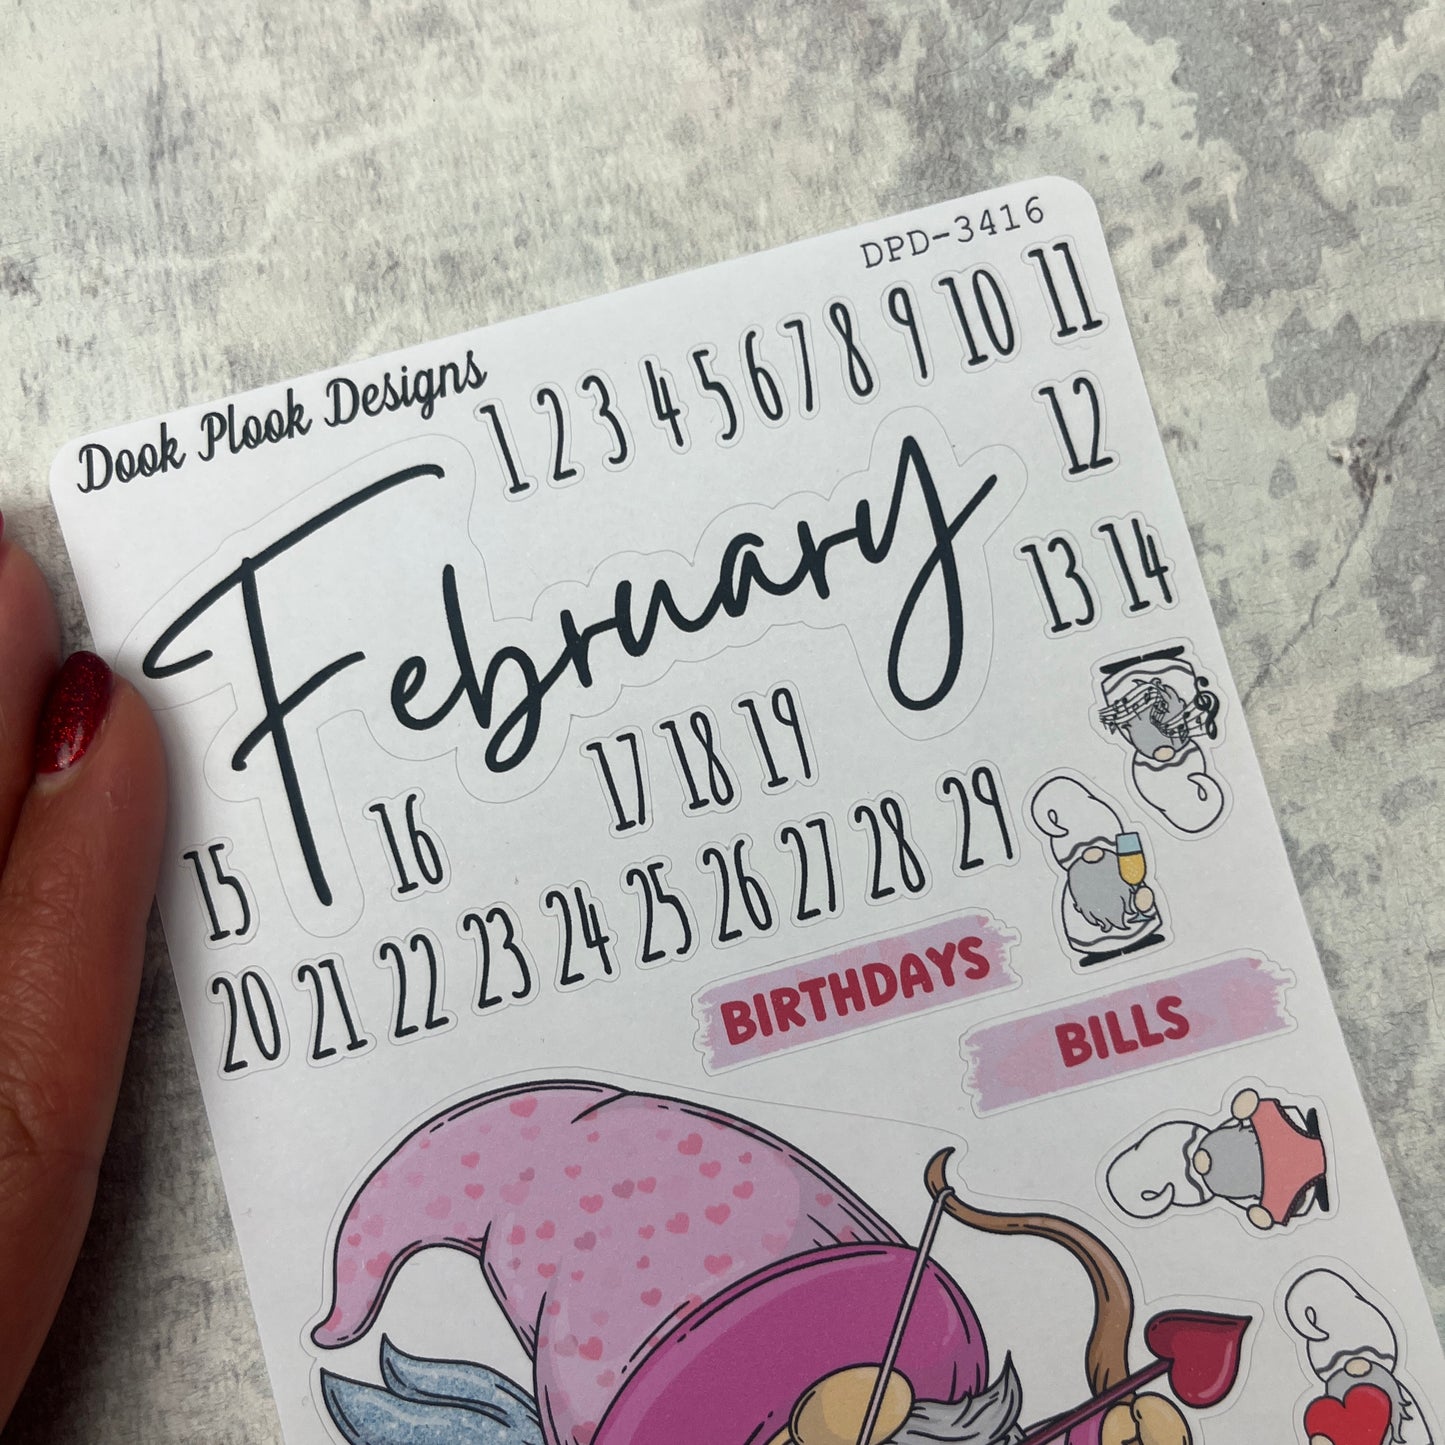 DPD-3416
Dook Plook Designs
1 2 3 4 5 6 7 8 9 10 11
12
February
13 14
17 18 19
15 16
20 21 22 23 24 25 26 27 28 29
BIRTHDAYS
BILLS